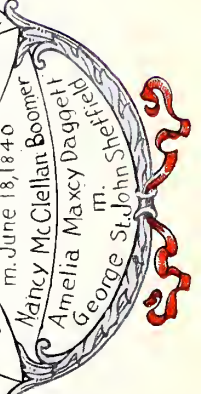 m. June 18, 1840
Nancy McClellan Boomer
Amelia Maxcy Daggett
m.
George St. John Sheffield